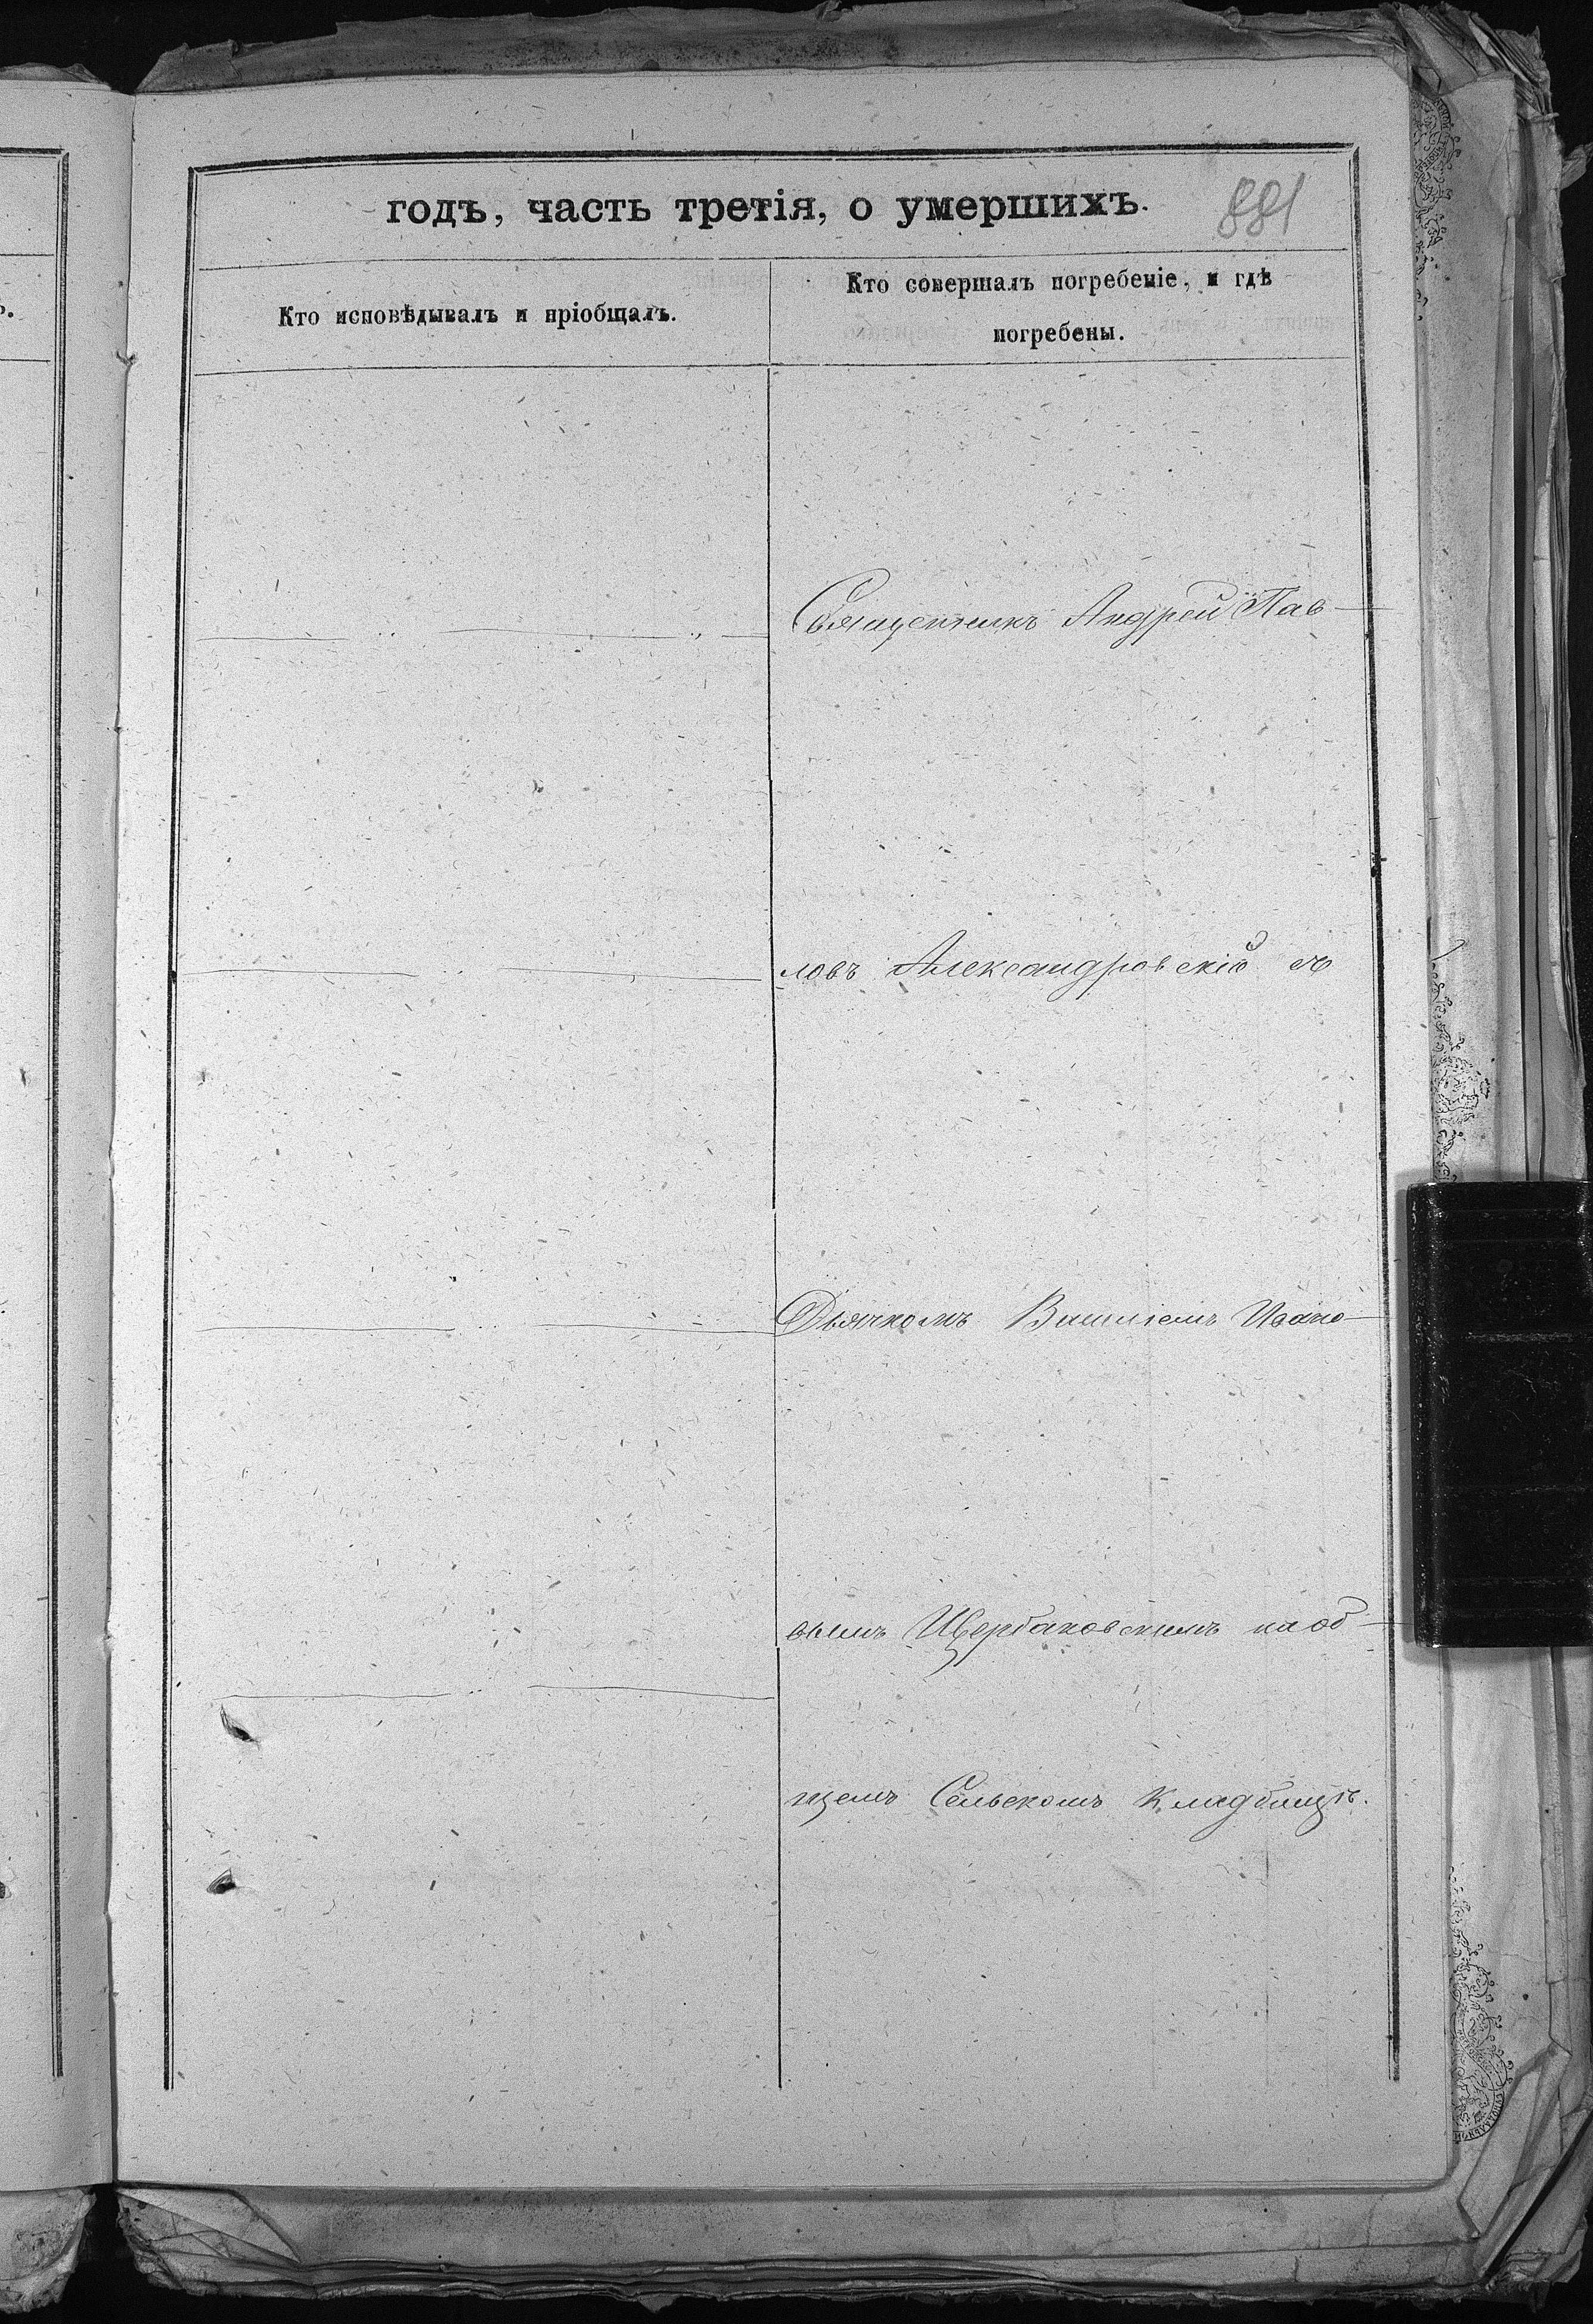 годъ, часть третія, о умершихъ.
881
Кто исповѣдывалъ и пріобщалъ.
Кто совершалъ погребеніе, и гдѣ
погребены.
Священникъ Андрей Пав-
ловъ Александровскій съ
Дьячкомъ Василіемъ Ивано-
вымъ Щербаковскимъ на об-
щемъ Сельскомъ Кладбищѣ.